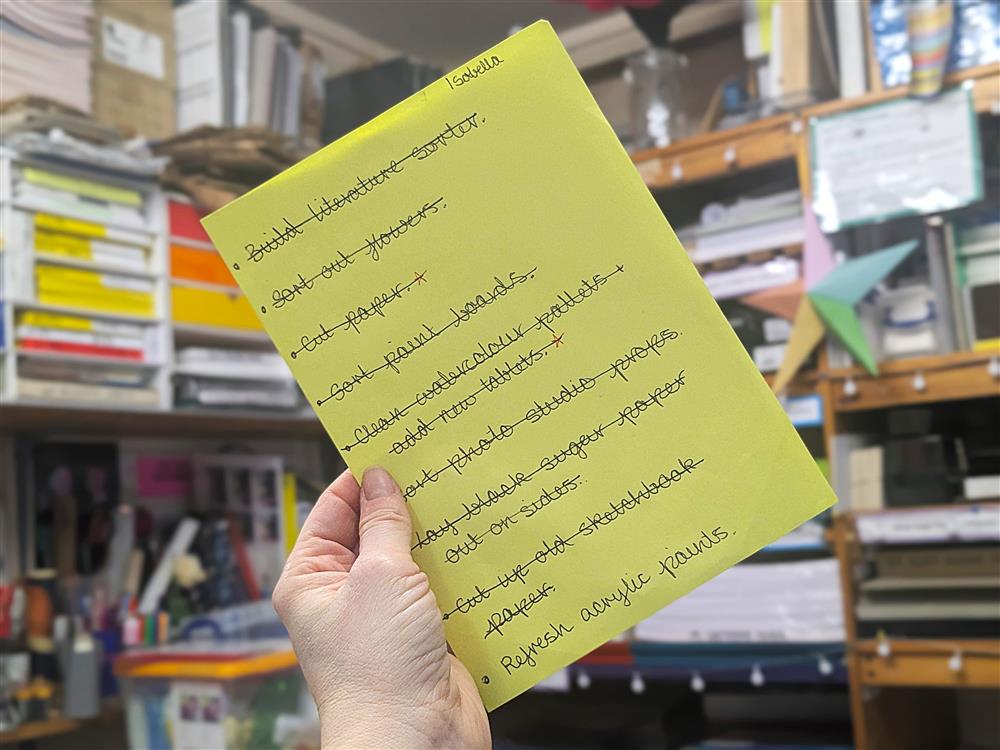 Isabella
• Build literature sorter.
• Sort out flowers.
• Cut paper. *
• Sort paint boards.
• Clean watercolour pallets +
add new tablets. *
ort photo studio props.
Lay black sugar paper
out on sides.
• Cut up old sketchbook
paper.
• Refresh acrylic paints.